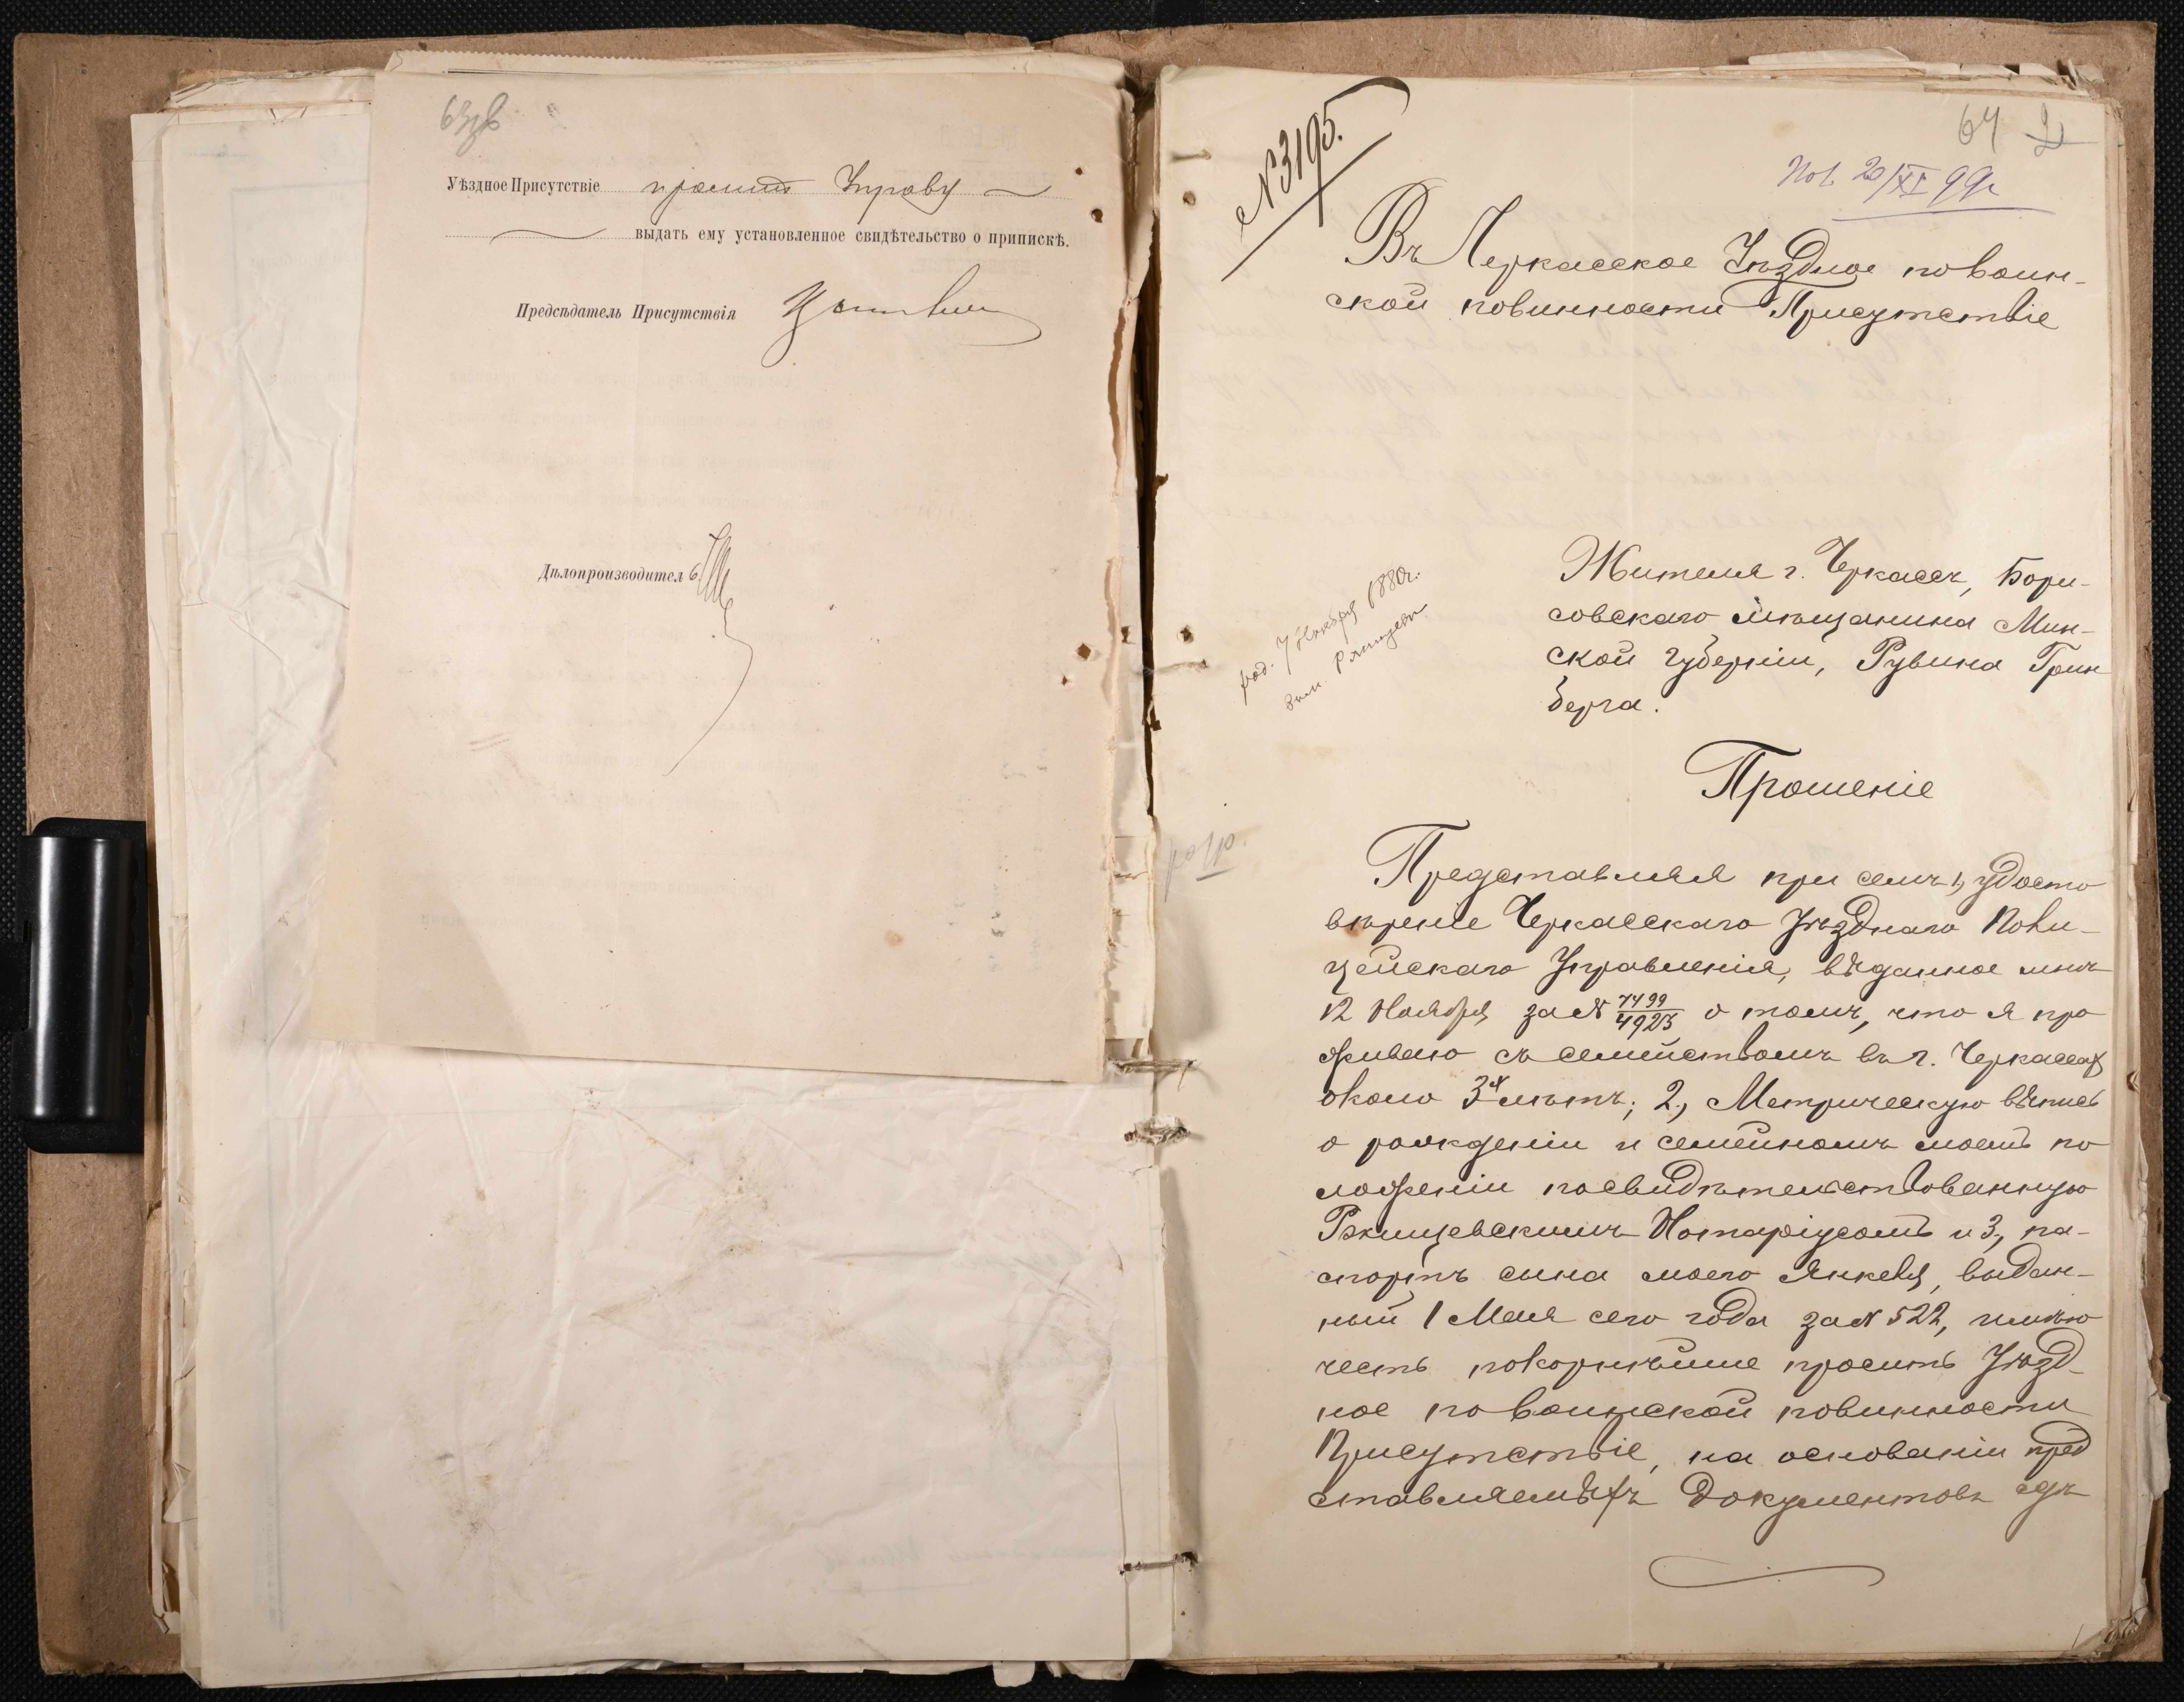 63об
Уѣздное Присутствіе проситъ Управу
выдать ему установленное свидѣтельство о припискѣ.
Предсѣдатель Присутствія
Дѣлопроизводитель
64
№ 3195.
Пол. 20/XI 99г
Въ Черкасское Уѣздное по воин-
ской повинности Присутствіе
род. 7 Ноября 1880г.
Жителя г. Черкассъ, Бори-
совскаго мѣщанина Мин-
ской губерніи, Рувина Грин
берга.
Прошеніе
Представляя при семъ 1, удосто
вѣреніе Черкасскаго Уѣзднаго Поли-
цейскаго Управленія, выданное мнѣ
12 Ноября за № 7499/4923 о томъ, что я про
живаю съ семействомъ въ г. Черкассах
около 3х лѣтъ; 2, Метрическую выпись
о рожденіи и семейномъ моемъ по
ложеніи посвидѣтельствованную
Ржищевскимъ Нотаріусомъ и 3, па-
спортъ сына моего Янкеля, выдан-
ный 1 Мая сего года за № 522, имѣю
честь покорнѣйше просить Уѣзд-
ное по воинской повинности
Присутствіе, на основаніи пред
ставляемыхъ документовъ сдѣ